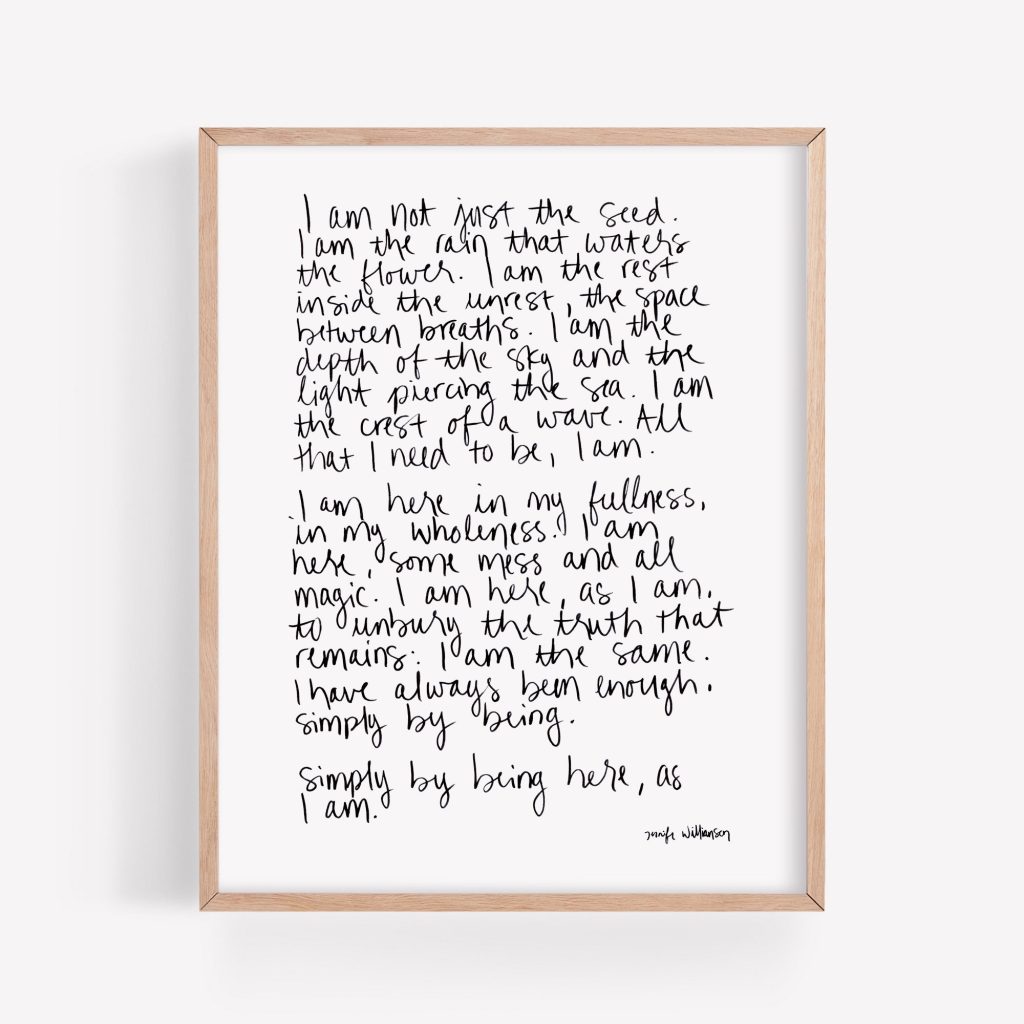 I am not just the seed.
I am the rain that waters
the flower. I am the rest
inside the unrest, the space
between breaths. I am the
depth of the sky and the
light piercing the sea. I am
the crest of a wave. All
that I need to be, I am.
I am here in my fullness,
in my wholeness. I am
here, some mess and all
magic. I am here, as I am,
to unbury the truth that
remains: I am the same.
I have always been enough.
simply by being.
simply by being here, as
I am.
Jennifer Williamson